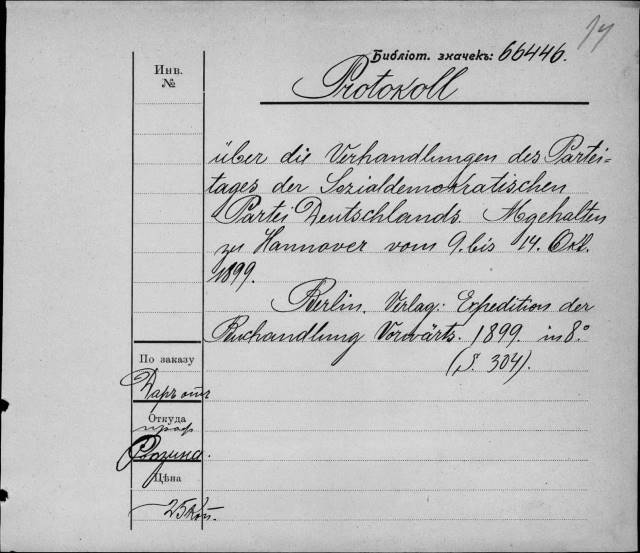 Инв.
№
Библіот. значекъ: 66446.
Protokoll
über die Verhandlungen des Partei=
tages der Sozialdemokratischen
Partei Deutschlands. Abgehalten
zu Hannover vom 9. bis 14. Okt.
1899.
Berlin. Verlag: Expedition der
Buchandlung Vorwärts. 1899. in 8.°
(S. 304).
По заказу
Даръ отъ
Откуда
проф
Розина.
Цѣна
25 коп.